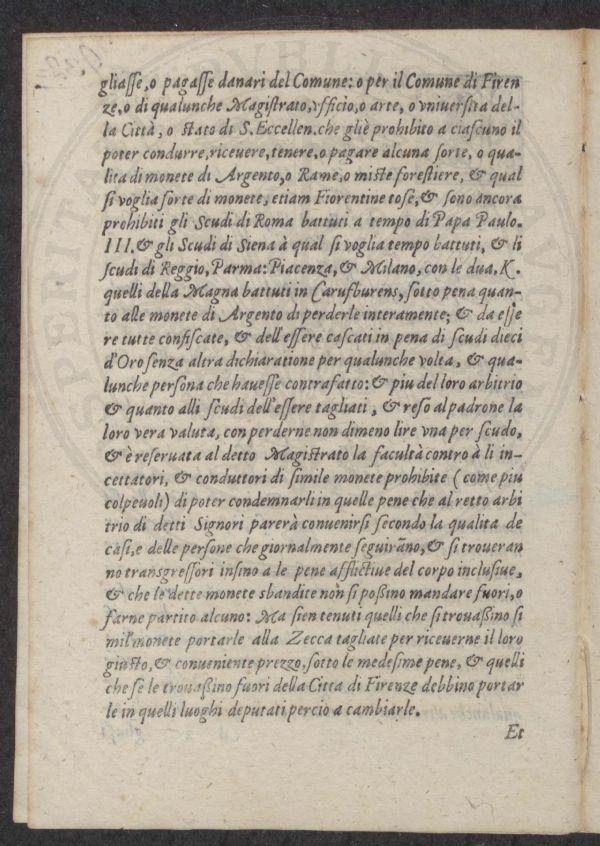 gliasse, o pagasse danari del Comune: o per il Comune di Firen
ze, o di qualunche Magistrato, vfficio, o arte, o vniuersita del-
la Città, o stato di S. Eccellen. che gliè prohibito a ciascuno il
poter condurre, riceuere, tenere, o pagare alcuna sorte, o qua-
lita di monete di Argento, o Rame, o miste forestiere, & qual
si voglia sorte di monete, etiam Fiorentine tose, & sono ancora
prohibiti gli Scudi di Roma battuti a tempo di Papa Paulo.
III. & gli Scudi di Siena à qual si voglia tempo battuti, & li
scudi di Reggio, Parma: Piacenza, & Milano, con le dua. K.
quelli della Magna battuti in Carusburens, sotto pena quan-
to alle monete di Argento di perderle interamente; & da esse
re tutte confiscate, & dell'essere cascati in pena di scudi dieci
d'Oro senza altra dichiaratione per qualunche volta, & qua-
lunche persona che hauesse contrafatto: & piu del loro arbitrio
& quanto alli scudi dell'essere tagliati, & reso al padrone la
loro vera valuta, con perderne non dimeno lire vna per scudo,
& è reseruata al detto Magistrato la facultà contro à li in-
cettatori, & conduttori di simile monete prohibite (come piu
colpeuoli) di poter condemnarli in quelle pene che al retto arbi
trio di detti Signori parerà conuenirsi secondo la qualita de
casi, e delle persone che giornalmente seguirãno, & si troueran
no transgressori insino a le pene afflictiue del corpo inclusiue,
& che le dette monete sbandite non si possino mandare fuori, o
farne partito alcuno: Ma sien tenuti quelli che si trouassino si
mil' monete portarle alla Zecca tagliate per riceuerne il loro
giusto, & conueniente prezzo, sotto le medesime pene, & quelli
che se le trouassino fuori della Citta di Firenze debbino portar
le in quelli luoghi deputati percio a cambiarle.
Et